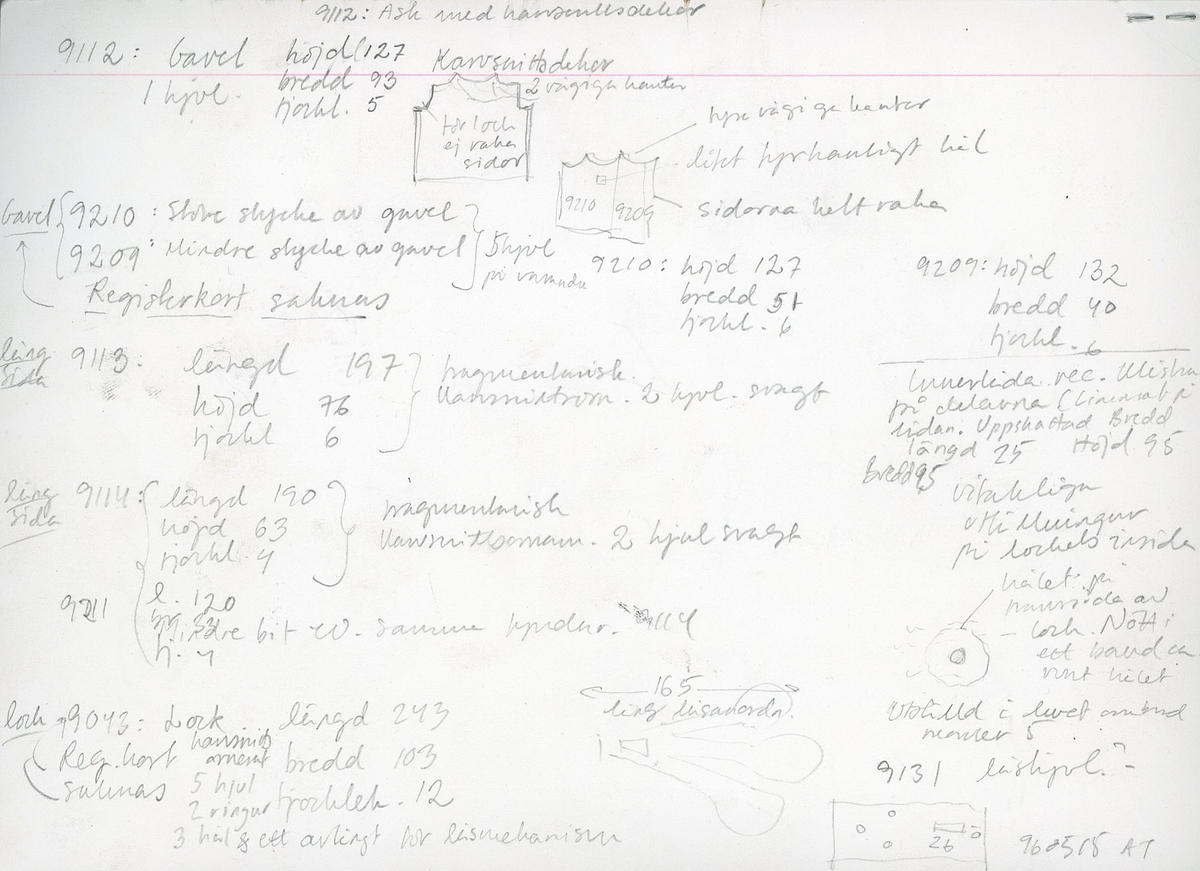 9112: Ask med karvsnittsdekor
9112: Gavel höjd 127 Karvsnittsdekor
1 hjul. bredd 93 2 vågiga kanter
tjockl. 5
för lock
ej raka
sidor
fyra vågiga kanter
litet fyrkantigt hål
9210 9209 sidorna helt raka
Gavel 9210: Större stycke av gavel
9209: Mindre stycke av gavel 5 hjul
på varandra
Registerkort saknas
9210: höjd 127
bredd 51
tjockl. 6
9209: höjd 132
bredd 40
tjockl. 6
lång
sida 9113: längd 197 fragmentarisk.
höjd 76 Karvsnittsorn. 2 hjul. svagt
tjockl 6
Innerlåda rec.
på delarna
lådan. Uppskattad Bredd
längd 25 Höjd 95
Bredd 95
lång
sida 9114: längd 190 fragmentarisk
höjd 63 Karvsnittsornam. 2 hjul svagt
tjockl. 4
9211 l. 120
br. 33
Mindre bit ev. samma fyndnr. 9114
tj. 4
vitakliga
utfillningar
på lockets insida
hålet på
framsida av
lock. Nött i
ett band ca
runt hålet
lock 9043: Lock längd 243
Reg.kort karvsnitts ornament bredd 103
saknas 5 hjul
2 ringar tjocklek. 12
3 hål & ett avlångt för låsmekanism
165
lång låsanordn.
Utställd i livet ombord
monter 5
9131 låshjul.?
26
960515 AT